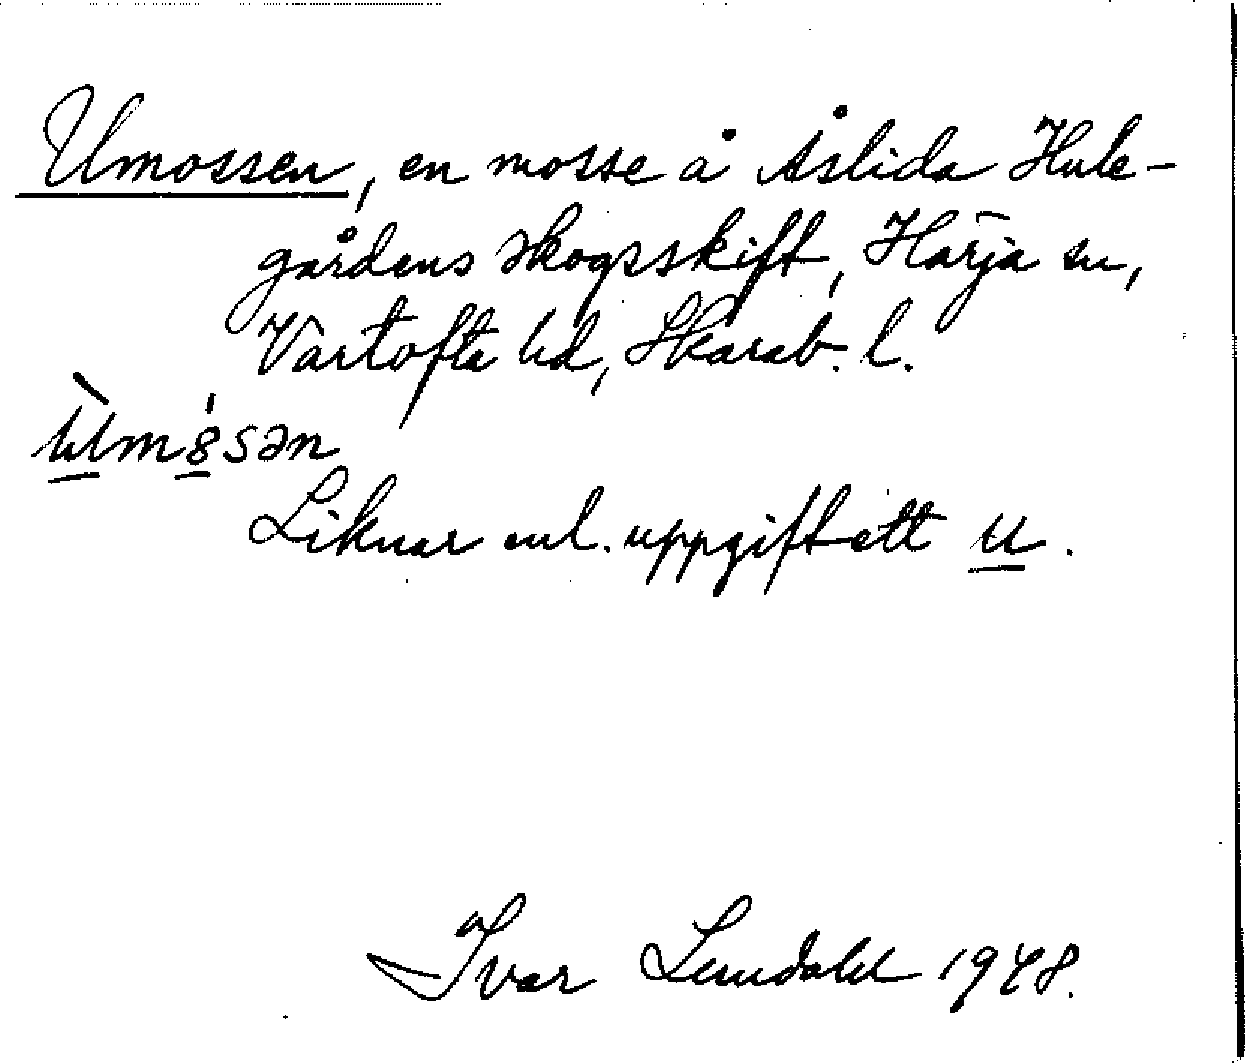 Umossen, en mosse å Åslida Hule-
gårdens skogsskift, Härja sn,
Vartofta hd, Skarab. l.
ùmósən
Liknar enl. uppgift ett u.
Ivar Lundahl 1948.